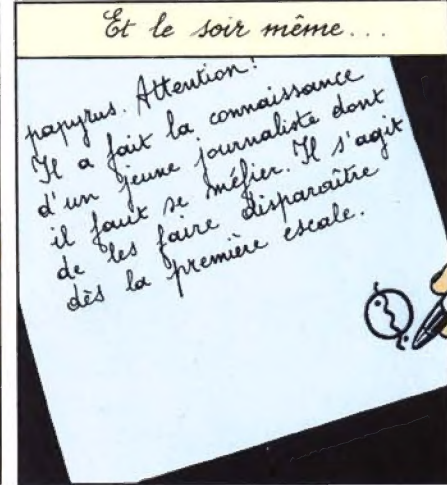 Et le soir même...
papyrus. Attention!
Il a fait la connaissance
d'un jeune journaliste dont
il faut se méfier. Il s'agit
de les faire disparaître
dès la première escale.